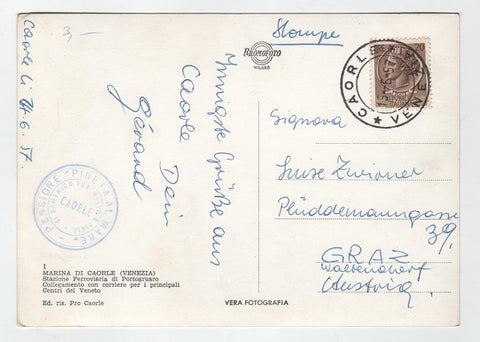 3,-
Stampe
Bromofoto
MILANO
20
CAORLE * VENEZIA
Caorle li 14.6.57.
Innigste Grüße aus
Caorle Dein
Gérard
PENSIONE "PINETA AL MARE"
CAORLE
Signora
Luise Zwirner
Plüddemanngasse
39.
GRAZ
Waltendorf
Austria
1
MARINA DI CAORLE (VENEZIA)
Stazione Ferroviaria di Portogruaro
Collegamento con corriere per i principali
Centri del Veneto
Ed. ris. Pro Caorle
VERA FOTOGRAFIA